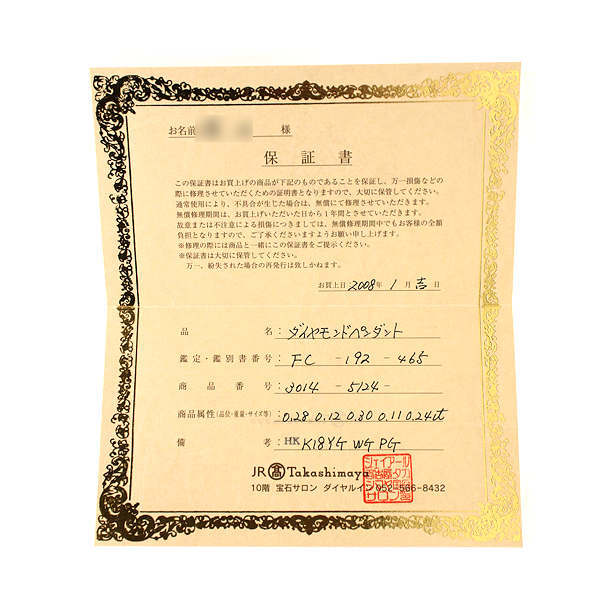 お名前 様
保証書
この保証書はお買上げの商品が下記のものであることを保証し、万一損傷などの
際に修理させていただくための証明書となりますので、大切に保管してください。
通常使用により、不具合が生じた場合は、無償にて修理させていただきます。
無償修理期間は、お買上げいただいた日から1年間とさせていただきます。
故意または不注意による損傷につきましては、無償修理期間中でもお客様の全額
負担となりますので、ご了承くださいますようお願い申し上げます。
※修理の際には商品と一緒にこの保証書をご提示ください。
※保証書は大切に保管してください。
万一、紛失された場合の再発行は致しかねます。
お買上日 2008年 1月 吉日
品名: ダイヤモンドペンダント
鑑定・鑑別書番号: FC -192 -465
商品番号: 3014 -5124-
商品属性(品位・重量・サイズ等) 0.28 0.12 0.30 0.11 0.24ct
備考: HK K18YG WG PG
JR 髙 Takashimaya
10階 宝石サロン ダイヤルイン 052-566-8432